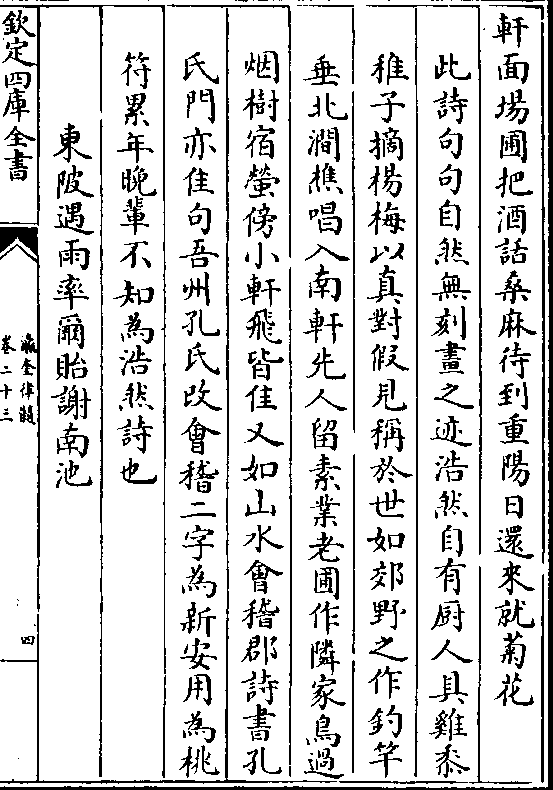 軒面場圃把酒話桑麻待到重陽日還來就菊花
此詩句句自然無刻畫之迹浩然自有厨人具雞黍
稚子摘楊梅以真對假見稱於世如郊野之作釣竿
垂北澗樵唱入南軒先人留素業老圃作隣家鳥過
烟樹宿螢傍小軒飛皆佳又如山水會稽郡詩書孔
氏門亦佳句吾州孔氏改會稽二字為新安用為桃
符累年晚輩不知為浩然詩也
東陂遇雨率爾貽謝南池
欽定四庫全書
瀛奎律髓
卷二十三
四